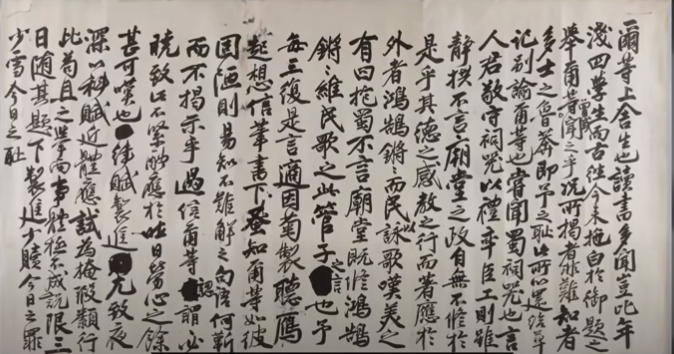 爾等上舍生也讀書多聞豈比年
淺四學生而古往今來拖白於御題之
舉爾等聞之乎況所揭者非難知者
多士之鹵莽即予之恥此所以
記別諭爾等也嘗聞蜀祠咒也言
人君敬守祠咒以禮率臣工則雖
靜拱不言廟堂之政自無不修於
是乎其德之感教之行而著應於
外者鴻鵠鏘〻而民以詠歌嘆美之
有曰抱蜀不言廟堂既修鴻鵠
鏘〻維民歌之此管子之言也予
每三復是言適因菊製聽鴈
起想信筆書下蚤知爾等如彼
固陋則易知不難解之句語何靳
而不揭示乎過信爾等認謂必
曉致此不緊酬應於昨日勞心之餘
甚可嘆也律賦製進尤致夜
深以科賦近體應試為類行
此苟且之學而事體極不成說限三
日隨其題下製進少贖今日之罪
少雪今日之恥